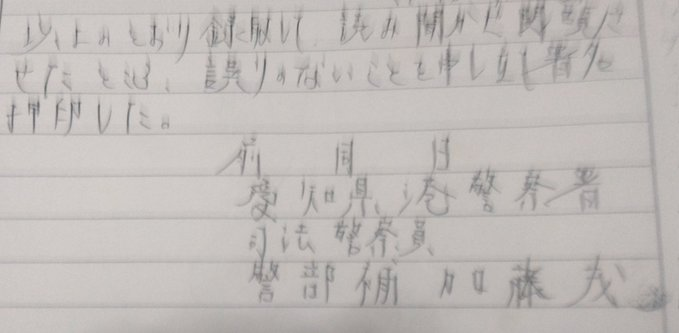 以上のとおり録取して読み聞かせ閲覧さ
せたところ、誤りのないことを申し立て署名
押印した。
前同日
愛知県港警察署
司法警察員
警部補 加藤茂